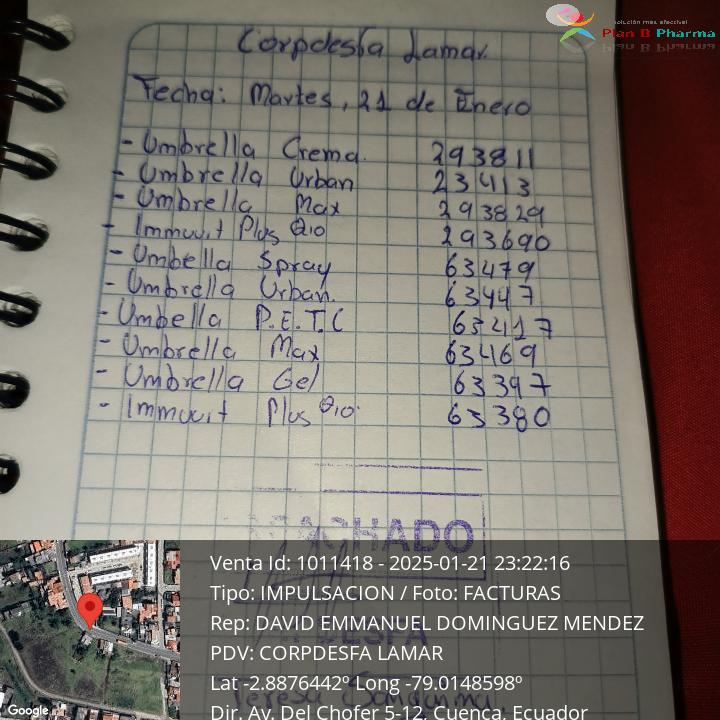 solución más efectiva!
Plan B Pharma
Corpdesfa Lamar.
Fecha: Martes, 21 de Enero
- Umbrella Crema. 293811
- Umbrella Urban 23413
- Umbrella Max 293829
- Immuvit Plus Q10 293690
- Umbella Spray 63479
- Umbrella Urban. 63447
- Umbella P.E.T.C 63417
- Umbrella Max 63469
- Umbrella Gel 63397
- Immuvit Plus Q10. 63380
MACHADO
Venta Id: 1011418 - 2025-01-21 23:22:16
Tipo: IMPULSACION / Foto: FACTURAS
Rep: DAVID EMMANUEL DOMINGUEZ MENDEZ
PDV: CORPDESFA LAMAR
Lat -2.8876442º Long -79.0148598º
Dir. Av. Del Chofer 5-12, Cuenca, Ecuador
Google